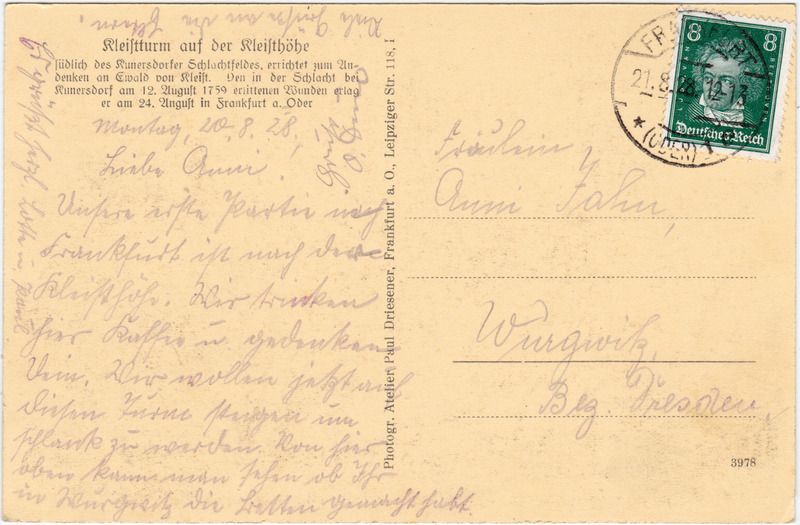 Viele Grüße an die Eltern!
Kleistturm auf der Kleisthöhe
südlich des Kunersdorfer Schlachtfeldes, errichtet zum An-
denken an Ewald von Kleist. Den in der Schlacht bei
Kunersdorf am 12. August 1759 erlittenen Wunden erlag
er am 24. August in Frankfurt a. Oder
Montag, 20.8.28.
Liebe Anni.
Unsere erste Partie nach
Frankfurt ist nach der
Kleisthöhe. Wir trinken
hier Kaffee u. gedenken
Dein. Wir wollen jetzt auf
diesen Turm steigen um
schlank zu werden. Von hier
oben kann man sehen ob Ihr
in Wurgwitz die Betten gemacht habt.
herzl. Lotte u. Paul
Photogr. Atelier Paul Driesener, Frankfurt a. O., Leipziger Str. 118, I
FRANKFURT
21.8.28. 12-13
* (ODER) 1
8 8
Deutsches Reich
Fräulein
Anni Jahn,
Wurgwitz,
Bez. Dresden.
3978